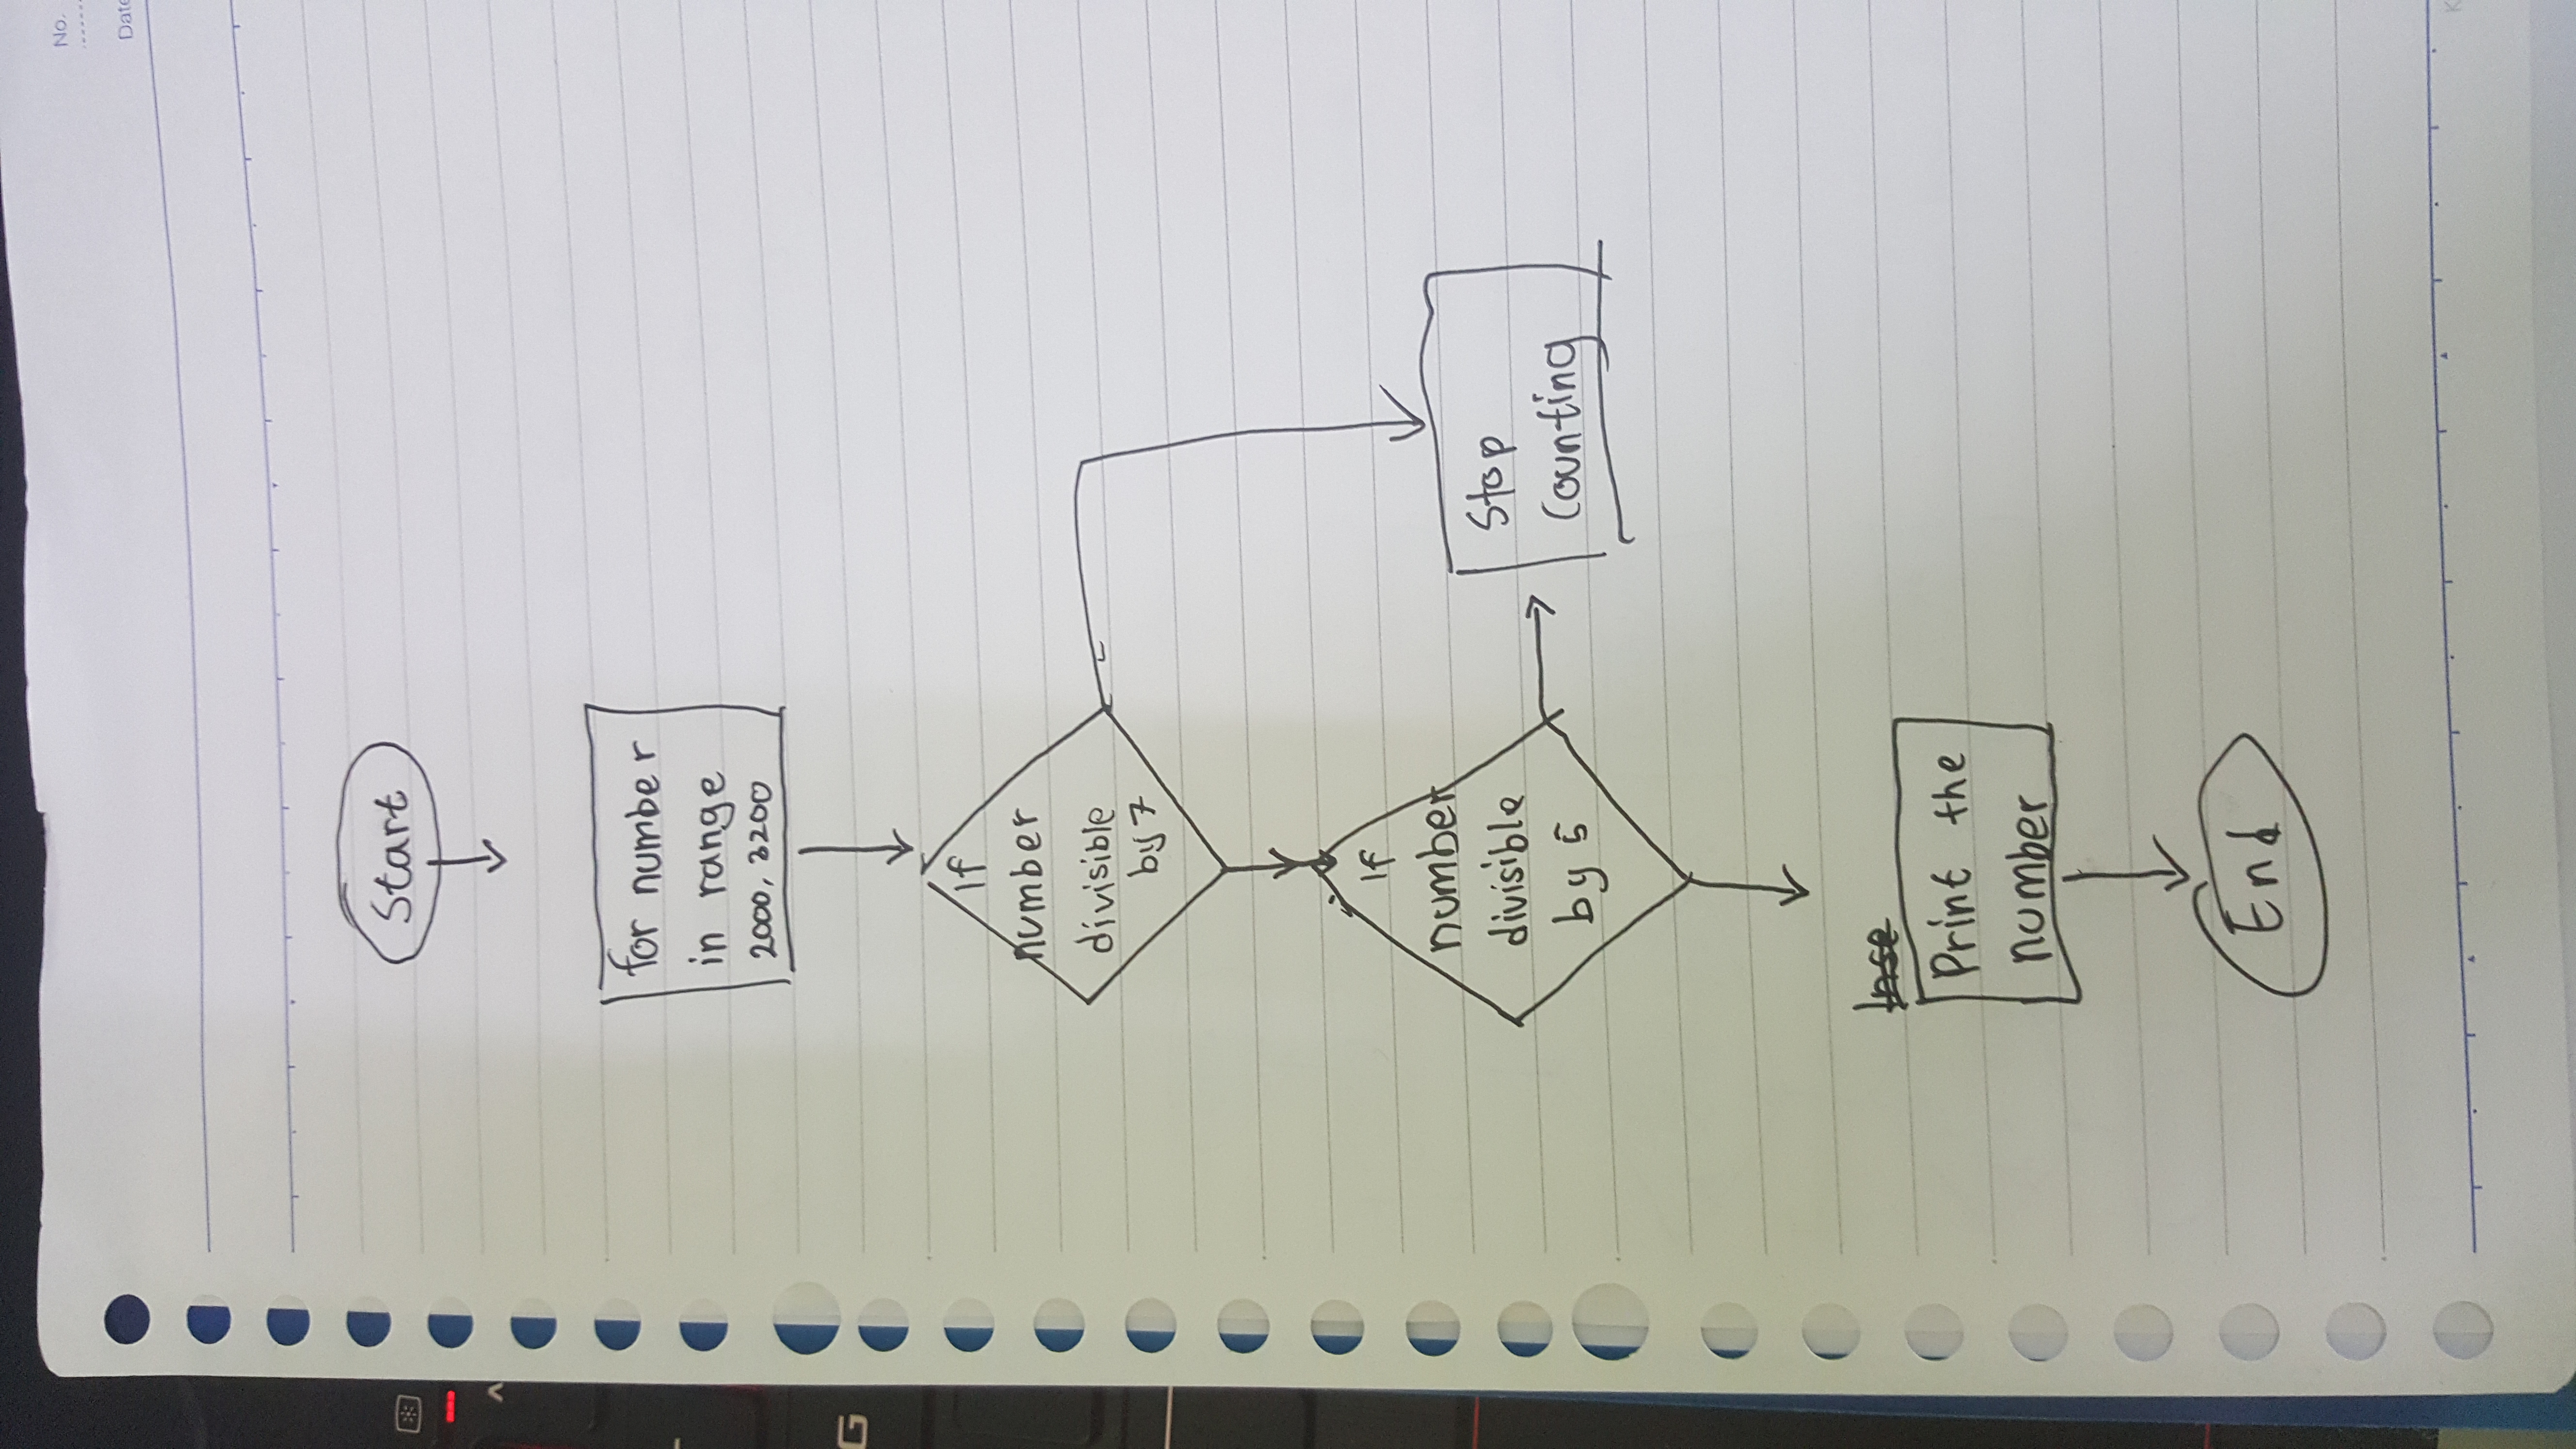 No.
Date
Start
for number
in range
2000, 3200
If
number
divisible
by 7
If
number
divisible
by 5
Stop
Counting
Inse
Print the
number
End
G
K